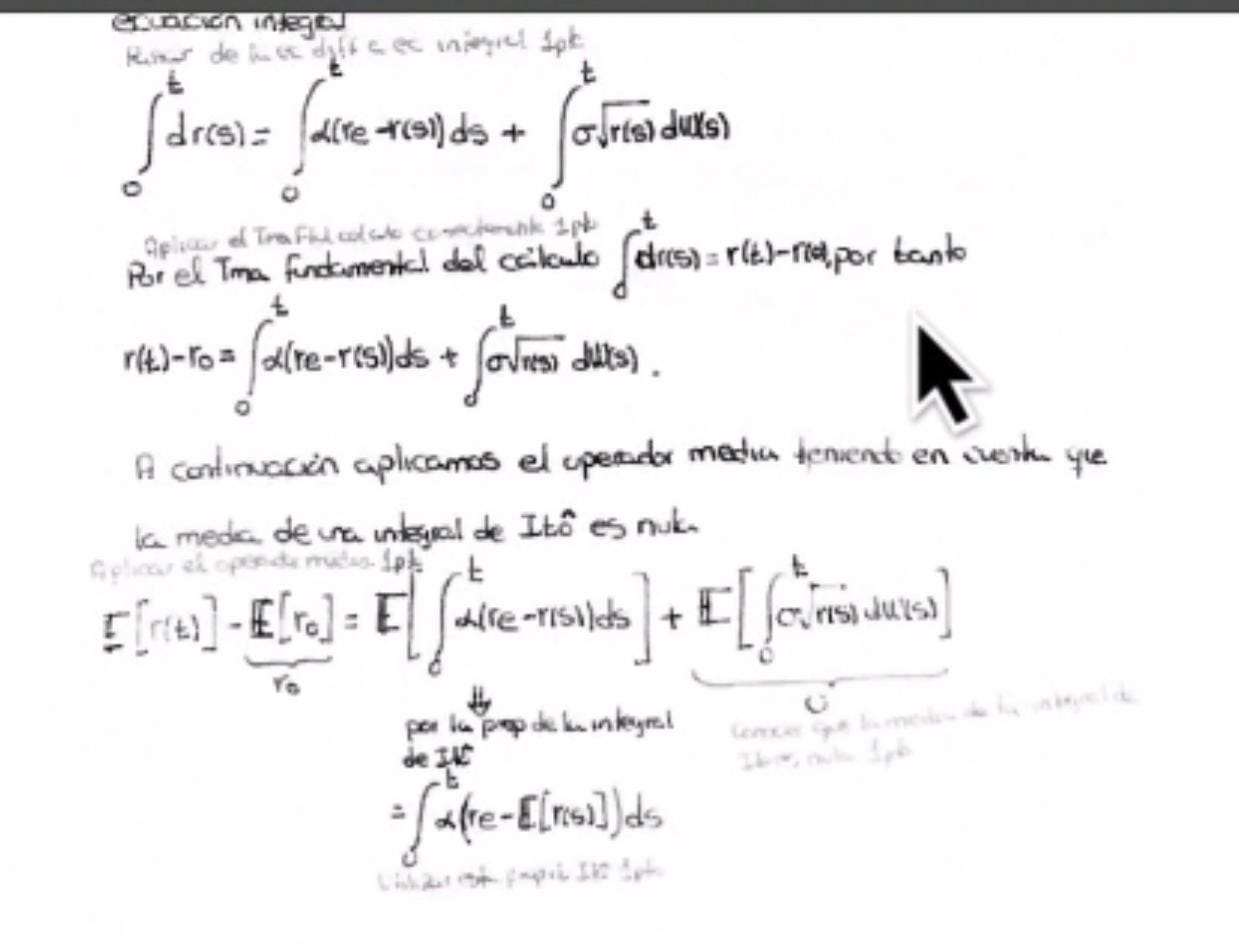 ecuación integral
Pasar de la ec diff a ec integral 1pt
∫₀ᵗ dr(s) = ∫₀ᵗ α(re - r(s)) ds + ∫₀ᵗ σ√r(s) dW(s)
Aplicar el Tma Fdel calculo correctamente 1pt
Por el Tma fundamental del cálculo ∫₀ᵗ dr(s) = r(t) - r(0), por tanto
r(t) - r₀ = ∫₀ᵗ α(re - r(s)) ds + ∫₀ᵗ σ√r(s) dW(s).
A continuación aplicamos el operador media teniendo en cuenta que
la media de una integral de Itô es nula
Aplicar el operador media 1pt
E[r(t)] - E[r₀] = E[∫₀ᵗ α(re - r(s)) ds] + E[∫₀ᵗ σ√r(s) dW(s)]
r₀ ⇓ 0
por la prop de la integral
de Itô
Conocer que la media de la integral de
Ito es nula 1pt
= ∫₀ᵗ α(re - E[r(s)]) ds
Utilizar esta Itô 1pt